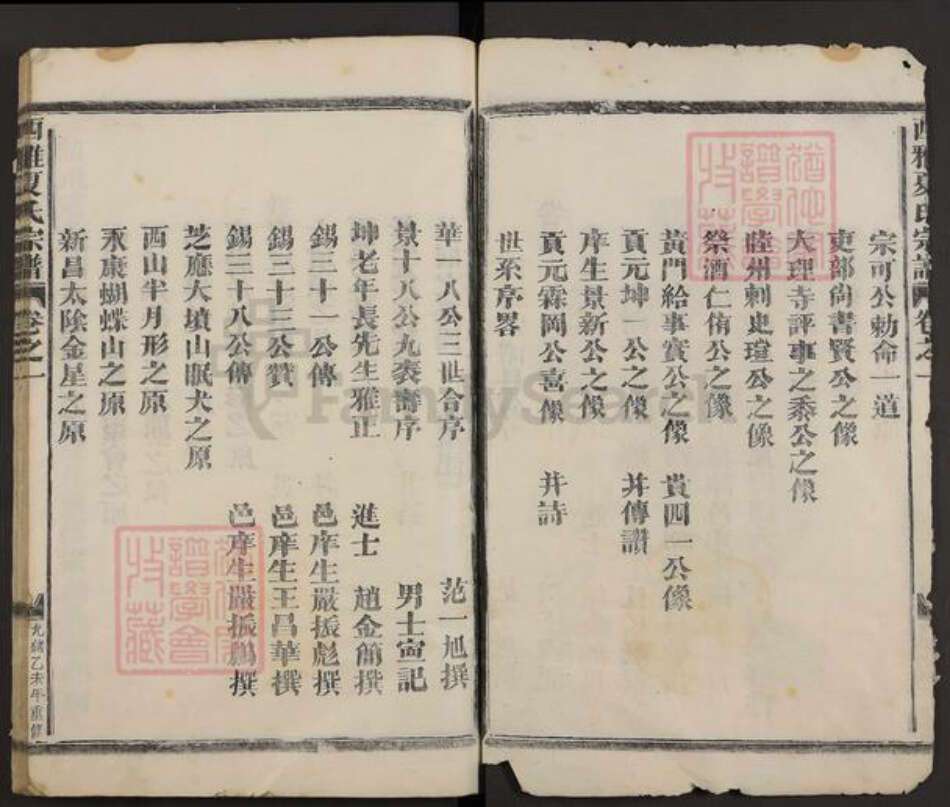 西雅夏氏宗譜 卷之一
宗可公勅命一道
吏部尚書賢公之像
大理寺評事之黍公之像
睦州刺史瑄公之像
祭酒仁侑公之像
黃門給事實公之像 貴四一公像
貢元坤一公之像 并傳讚
庠生景新公之像
貢元霖岡公喜像 并詩
世系序畧
華一八公三世合序 范一旭撰
景十八公九袠壽序 男士寅記
坤老年長先生雅正 進士 趙金簡撰
錫三十一公傳 邑庠生嚴振彪撰
錫三十三公贊 邑庠生王昌華撰
錫三十八公傳 邑庠生嚴振鵬撰
芝應大墳山眠犬之原
西山半月形之原
永康蝴蝶山之原
新昌太陰金星之原
西雅夏氏宗譜 卷之一
光緒乙未年重修
譜學會
收藏
譜學會
收藏
FamilySearch